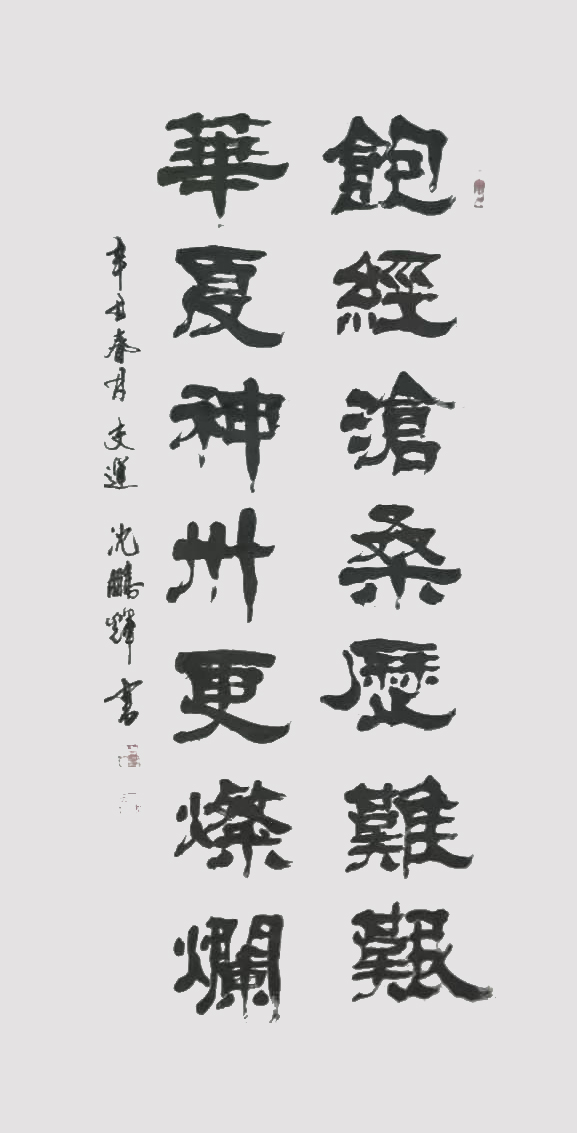 飽經滄桑歷難艱
華夏神州更燦爛
辛丑春月 支運 沈鵬輝書